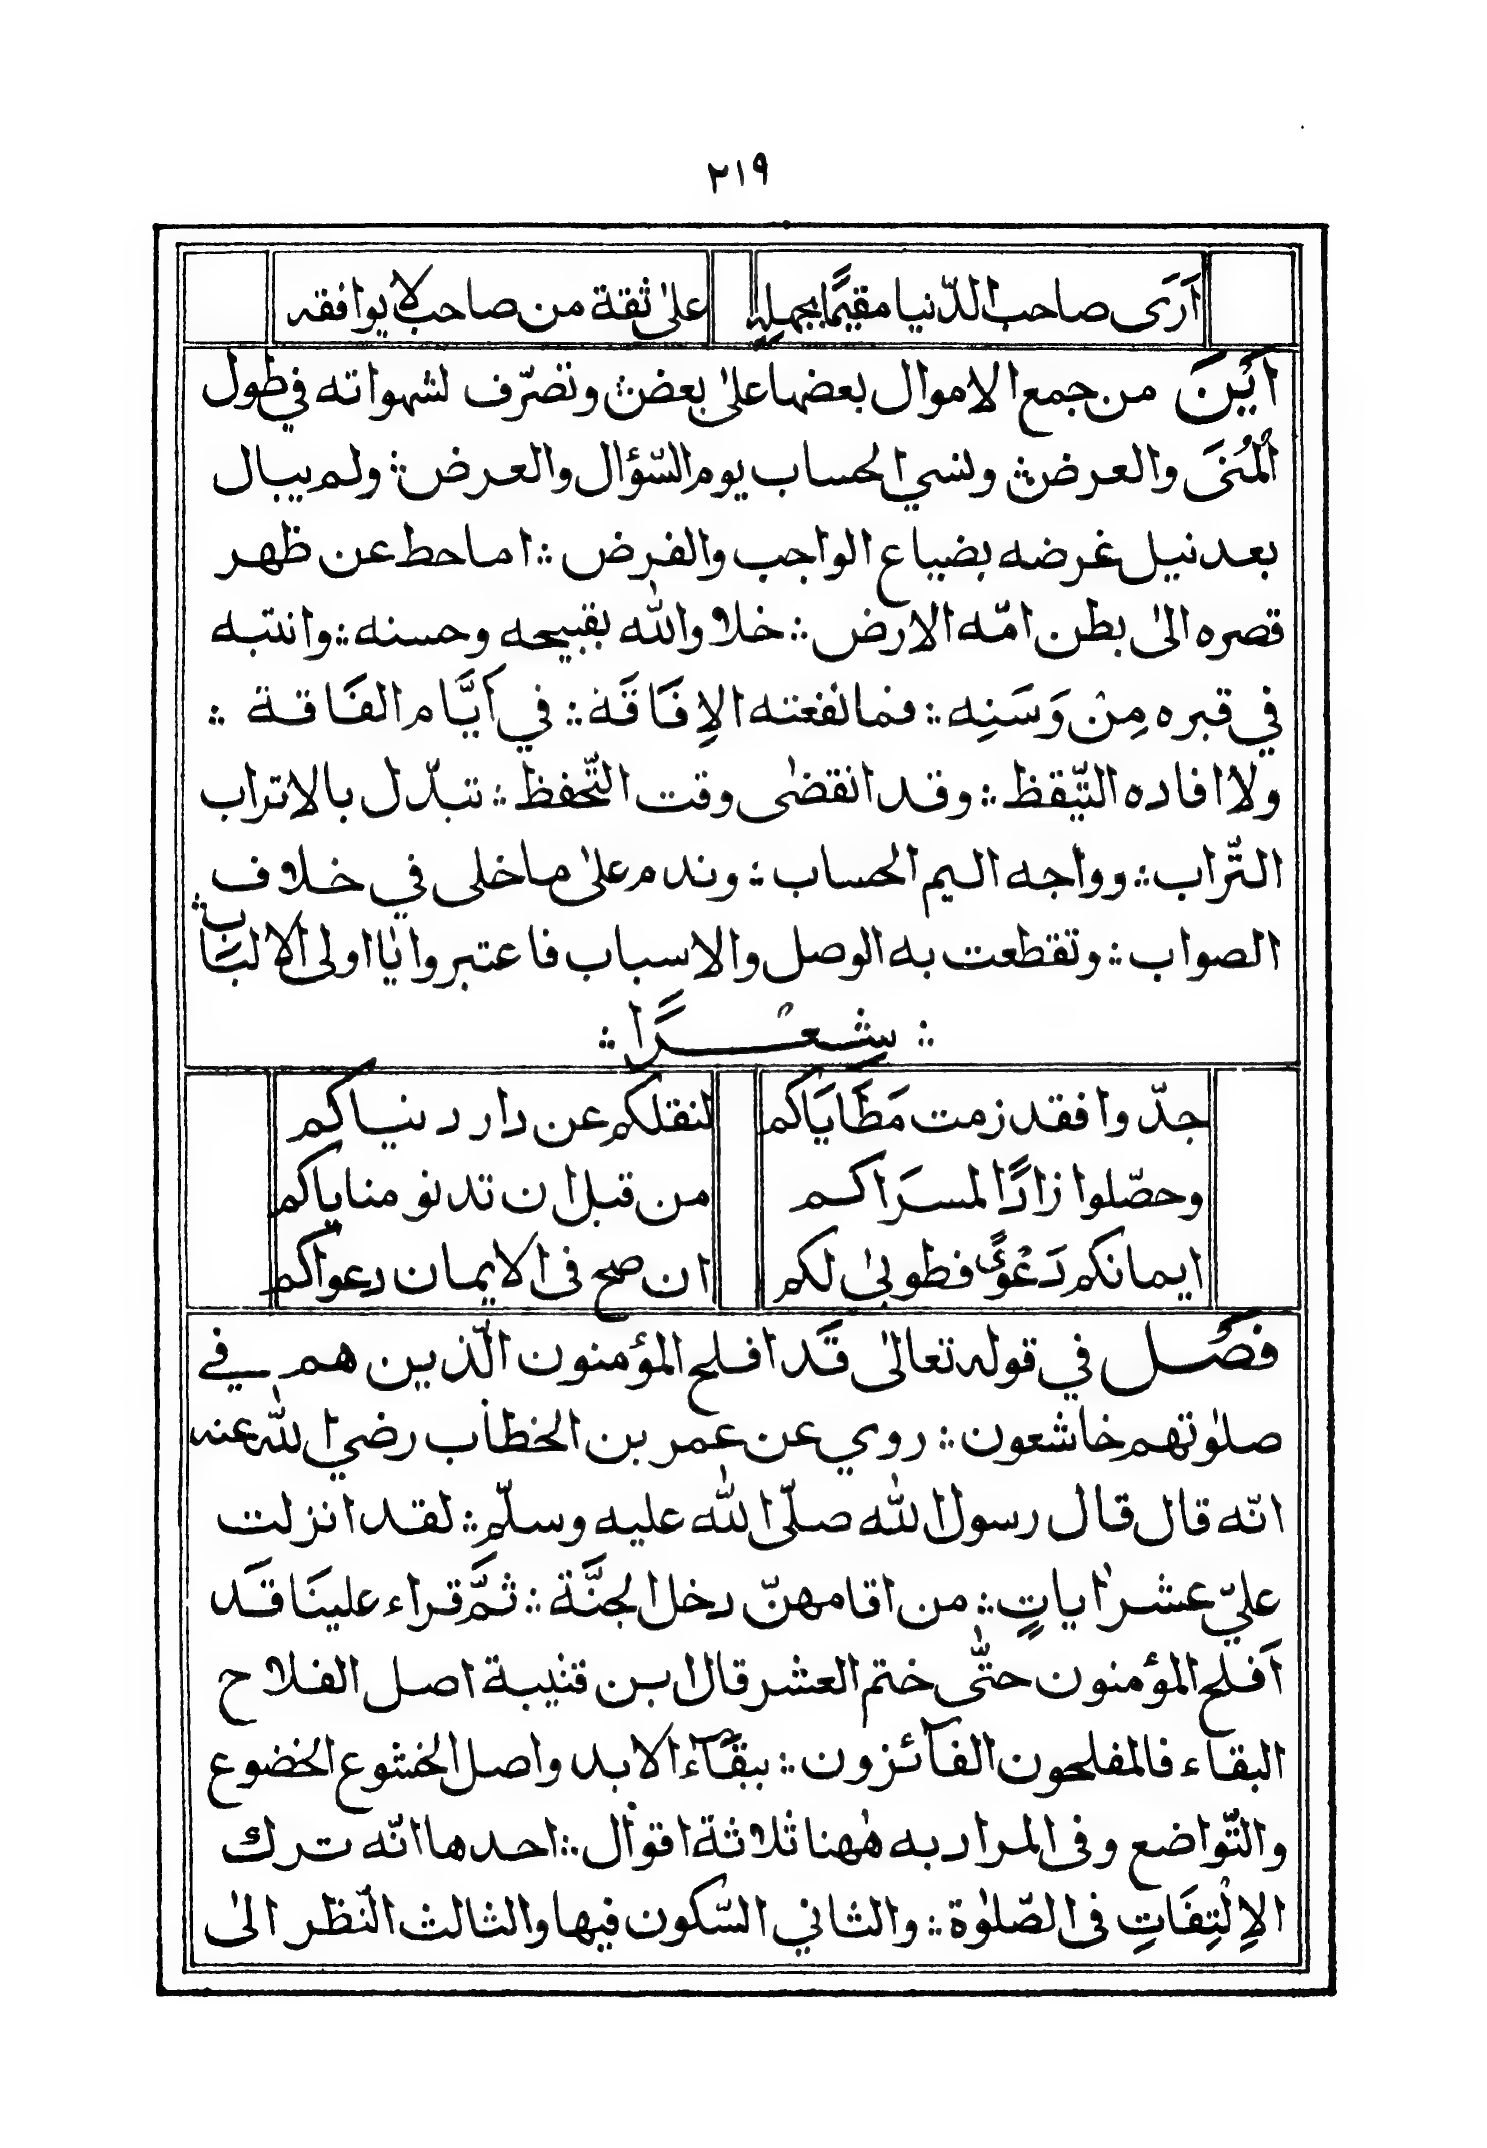 ٢١٩
اَرَى صاحب الدّنيا مقيمًا بجهلهٖ على ثقة من صاحب لا يوافقه
اَيْنَ من جمع الاموال بعضها على بعض ∴ وتصرّف لشهواته في طول
الْمُنَى والعرض ∴ ونسي الحساب يوم السّؤال والعرض ∴ ولم يبال
بعد نيل غرضه بضياع الواجب والفرض ∴ اما حط عن ظهر
قصره الى بطن امّه الارض ∴ خلا والله بقبيحه وحسنه ∴ وانتبه
في قبره مِنْ وَسَنِه ∴ فما نفعته الاِفَاقَة ∴ في اَيَّام الفَاقة ∴
ولا افاده التّيّقظ ∴ وقد انقضى وقت التّحفظ ∴ تبدّل بالاتراب
التّراب ∴ وواجه اليم الحساب ∴ وندم على ما خلى في خلاف
الصواب ∴ وتقطعت به الوصل والاسباب فاعتبروا يا اولى الالباب ∴
∴ شِعْرًا ∴
جدّوا فقد زمت مَطَايَاكم لنقلكم عن دار دنياكم
وحصّلوا زادًا لمسرَاكم من قبل ان تدنو مناياكم
ايمانكم دَعْوًى فطوبى لكم ان صح فى الايمان دعواكم
فَصْل في قوله تعالى قَد افلح المؤمنون الّذين هم في
صلوتهم خاشعون ∴ روي عن عمر بن الخطاب رضي الله عنه
انّه قال قال رسول الله صلّى الله عليه وسلّم ∴ لقد انزلت
عليّ عشر اياتٍ ∴ من اقامهنّ دخل الجنَّة ∴ ثمَّ قراء علينَا قَد
اَفلح المؤمنون حتّى ختم العشر قال ابن قتيبة اصل الفلاح
البقاء فالمفلحون الفآئزون ∴ ببقَآء الابد واصل الخشوع الخضوع
والتّواضع وفى المراد به ههنا ثلاثة اقوال ∴ احدها انّه ترك
الاِلْتِفَاتِ فى الصّلوة ∴ والثاني السّكون فيها والثالث النّظر الى